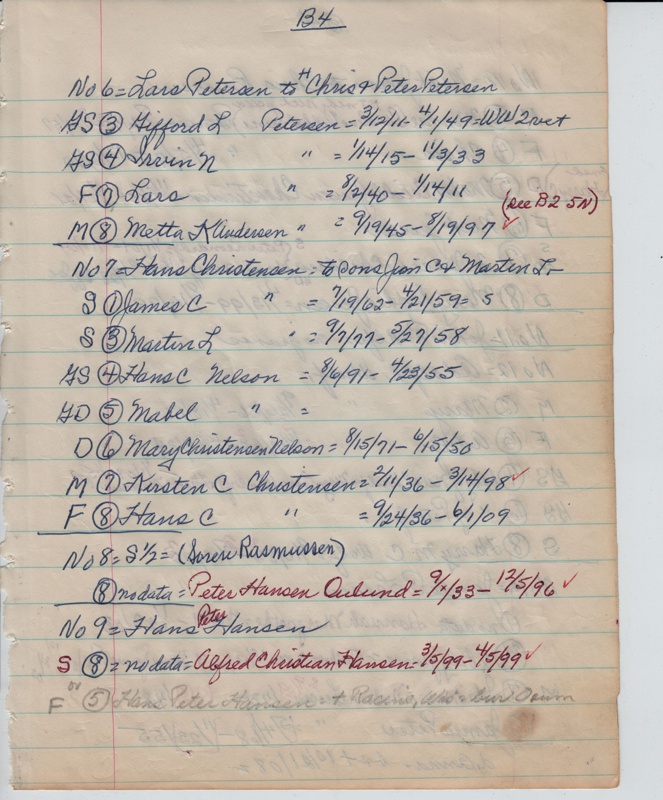 B4
No 6 = Lars Petersen to H Chris & Peter Petersen
GS ③ Gifford L Petersen = 3/12/11 - 4/1/49 = WW2 vet
GS ④ Irvin N " = 1/14/15 - 11/3/33
F ⑦ Lars " = 8/2/40 - 1/14/11
(see B2 5N)
M ⑧ Metta K Andersen " = 9/19/45 - 8/19/97 ✓
No 7 = Hans Christensen = to sons Jim C & Martin L
S ① James C " = 7/19/62 - 4/21/59 = S
S ③ Martin L " = 9/7/77 - 5/27/58
GS ④ Hans C Nelson = 8/6/91 - 4/23/55
GD ⑤ Mabel " =
D ⑥ Mary Christensen Nelson = 8/15/71 - 6/15/50
M ⑦ Kirsten C Christensen = 2/11/36 - 3/14/98 ✓
F ⑧ Hans C " = 9/24/36 - 6/1/09
No 8 = S 1/2 = (Soren Rasmussen)
⑧ no data = Peter Hansen Aulund = 9/x/33 - 12/5/96 ✓
No 9 = Hans Peter Hansen
S ⑧ = no data = Alfred Christian Hansen = 3/5/99 - 4/5/99 ✓
F or ⑤ Hans Peter Hansen = + Racine, Wis = bur